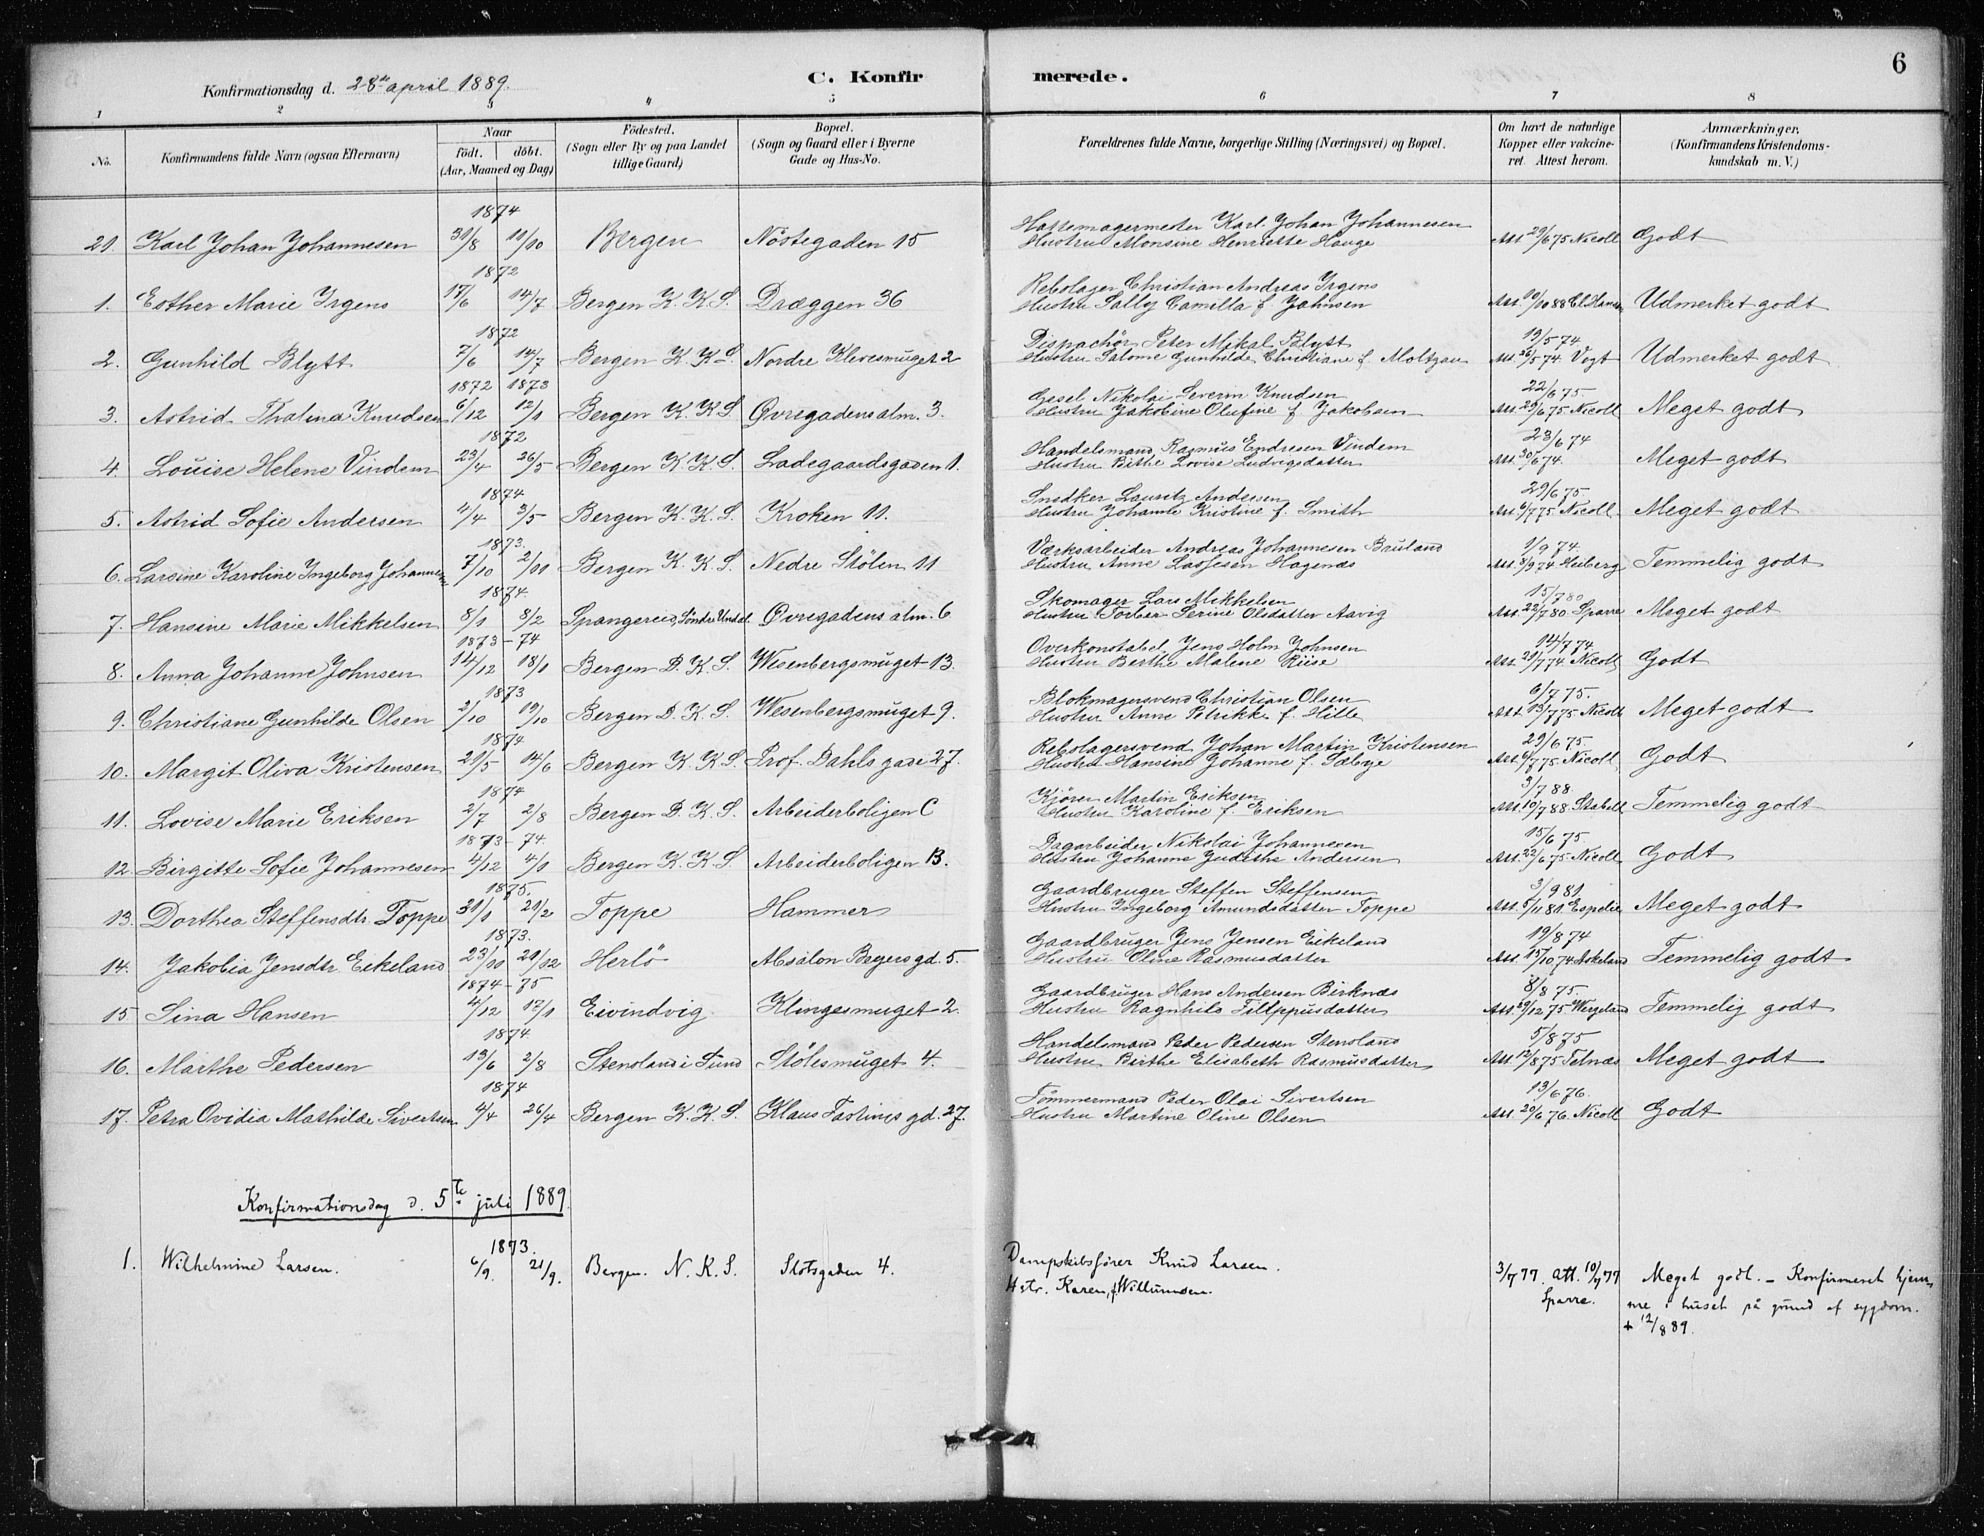 6
Konfirmationsdag d. 28de april 1889.
C. Konfirmerede.
1 2 3 4 5 6 7 8
No.
Konfirmandens fulde Navn (ogsaa Efternavn)
Naar
födt. döbt.
(Aar, Maaned og Dag)
Födested.
(Sogn eller By og paa Landet
tillige Gaard)
Bopæl.
(Sogn og Gaard eller i Byerne
Gade og Hus-No.
Forældrenes fulde Navne, borgerlige Stilling (Næringsvei) og Bopæl.
Om havt de naturlige
Kopper eller vakcine-
ret. Attest herom.
Anmærkninger.
(Konfirmandens Kristendoms-
kundskab m. V.)
1874
21. Karl Johan Johannesen 31/8 11/10 Bergen Nöstegaden 15
Hattemagermester Karl Johan Johannesen
Hustru Monsine Henriette Hauge
Att. 29/6 75 Nicoll Godt
1872
1. Esther Marie Irgens 17/6 14/7 Bergen K. K. S. Dræggen 36
Rebslager Christian Andreas Irgens
Hustru Sally Camilla f. Jahnsen
Att. 10/10 88 Udmerket godt
1872
2. Gunhild Blytt 7/6 14/7 Bergen K. K. S. Nordre Klevesmuget 2
Dispachör Peter Mikal Blytt
Hustru Salome Gunhilde Christiane f. Moltzau
19/5 74
Att. 26/5 74. Vogt Udmerket godt
1872 1873
3. Astrid Thalina Knudsen 6/12 12/1 Bergen K. K. S. Øvregadens alm. 3.
Gesel Nikolai Severin Knudsen
Hustru Jakobine Olufine f. Jakobsen
22/6 75.
Att. 29/6 75 Nicoll Meget godt
1872
4. Louise Helene Vindem 23/4 26/5 Bergen K. K. S. Ladegaardsgaden 1.
Handelsmand Rasmus Endresen Vindem
Hustru Birthe Lovise Ludvigsdatter
23/6 74
Att. 30/6 74. Meget godt
1874
5. Astrid Sofie Andersen 4/4 3/5 Bergen K. K. S. Kroken 11.
Snedker Lauritz Andersen
Hustru Johanne Kristine f. Smith
29/6 75.
Att. 6/7 75 Nicoll. Meget godt
1873.
6. Larsine Karoline Ingeborg Johannesen 7/10 2/11 Bergen K. K. S. Nedre Stölen 11
Værksarbeider Andreas Johannesen Bruland
Hustru Anne Lassesen Hagenæs
1/9 74.
Att. 8/9 74 Heiberg Temmelig godt
1874
7. Hansine Marie Mikkelsen 8/1 8/2 Spangereid, Söndre Undal Øvregadens alm. 6
Skomager Lars Mikkelsen
Hustru Torbor Serine Olsdatter Aavig
15/7 80
Att. 22/7 80 Sparre Meget godt
1873 - 74
8. Anna Johanne Johnsen 14/12 18/1 Bergen D. K. S. Wesenbergsmuget 13.
Overkonstabel Jens Holm Johnsen
Hustru Berthe Malene Riise
14/7 74.
Att. 21/7 74. Nicoll Godt
1873
9. Christiane Gunhilde Olsen 2/10 19/10 Bergen D. K. S. Wesenbergsmuget 9.
Blokmagersvend Christian Olsen
Hustru Anne Petrikke f. Hille
6/7 75.
Att 13/7 75 Nicoll Meget godt
1874
10. Margit Oliva Kristensen 21/5 14/6 Bergen K. K. S. Prof. Dahls gase 27.
Rebslagersvend Johan Martin Kristensen
Hustru Hansine Johanne f. Sæbye
29/6 75.
Att. 6/7 75 Nicoll Godt
1874
11. Lovise Marie Eriksen 2/7 2/8 Bergen D. K. S. Arbeiderboligen C
Kjörer Martin Eriksen
Hustru Karoline f. Eriksen
3/7 88
Att. 10/7 88. Stabell Temmelig godt
1873 - 74.
12. Birgitte Sofie Johannesen 4/12 4/1 Bergen K. K. S. Arbeiderboligen B.
Dagarbeider Nikolai Johannesen
Hustru Johanne Andersen
15/6 75
Att. 22/6 75 Nicoll Godt
1875.
13. Dorthea Steffensdtr. Toppe 31/1 21/2 Toppe Hammer
Gaardbruger Steffen Steffensen
Hustru Ingeborg Amundsdatter Toppe
3/9 81
Att. 5/11 81. Espelie Meget godt
1873.
14. Jakobia Jensdtr. Eikeland 23/10 21/12 Herlö Absalon Beyers gd. 5.
Gaardbruger Jens Jensen Eikeland
Hustru Oline Rasmusdatter
19/8 74
Att. 15/10 74 Askeland Temmelig godt
1874 - 75
15 Sina Hansen 4/12 12/1 Eivindvig Klingesmuget 2.
Gaardbruger Hans Andersen Birknæs
Hustru Ragnhild Fillippusdatter
8/8 75.
Att. 29/12 75 Wergeland Temmelig godt
1874
16. Marthe Pedersen 13/6 2/8 Stensland i Sund Stölesmuget 4.
Handelsmand Peder Pedersen Stensland
Hustru Birthe Elisabeth Rasmusdatter
5/8 75
Att 12/8 75 Telnæs Meget godt
1874
17. Petra Ovidia Mathilde Sivertsen 4/4 26/4 Bergen K. K. S. Klaus Fastings gd. 27.
Tömmermand Peder Olai Sivertsen
Hustru Martine Oline Olsen
13/6 76.
Att. 20/6 76. Nicoll Godt
Konfirmationsdag d. 5te juli 1889.
1873.
1. Wilhelmine Larsen. 6/9. 21/9. Bergen. N. K. S. Slotsgaden 4.
Dampskibsförer Knud Larsen.
Hstr. Karen, f. Willumsen.
3/7 77. Att. 10/7 77
Sparre.
Meget godt. - Konfirmeret hjem-
me i huset på grund af sygdom.
+ 12/8 89.